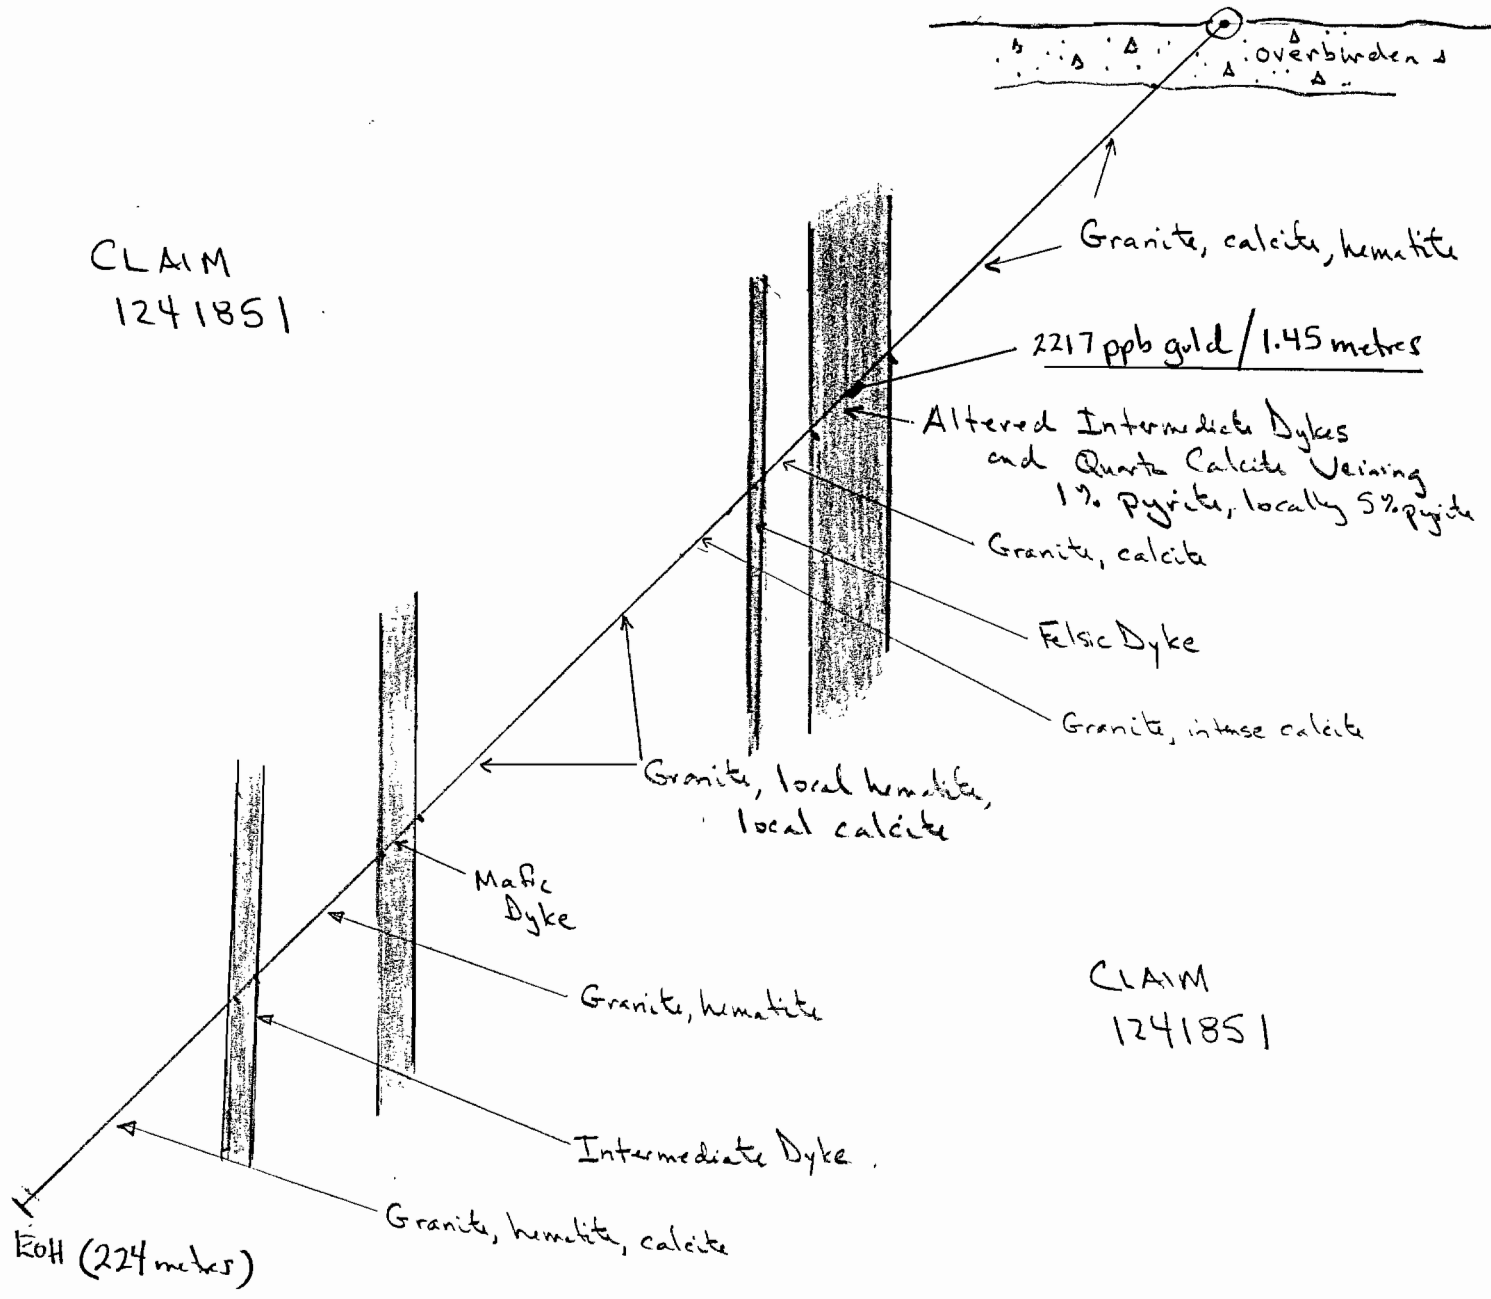 overburden
CLAIM
1241851
Granite, calcite, hematite
2217 ppb gold/1.45 metres
Altered Intermediate Dykes
and Quartz Calcite Veining
1% pyrite, locally 5% pyrite
Granite, calcite
Felsic Dyke
Granite, intense calcite
Granite, local hematite,
local calcite
Mafic
Dyke
Granite, hematite
CLAIM
1241851
Intermediate Dyke
Granite, hematite, calcite
EOH (224 metres)